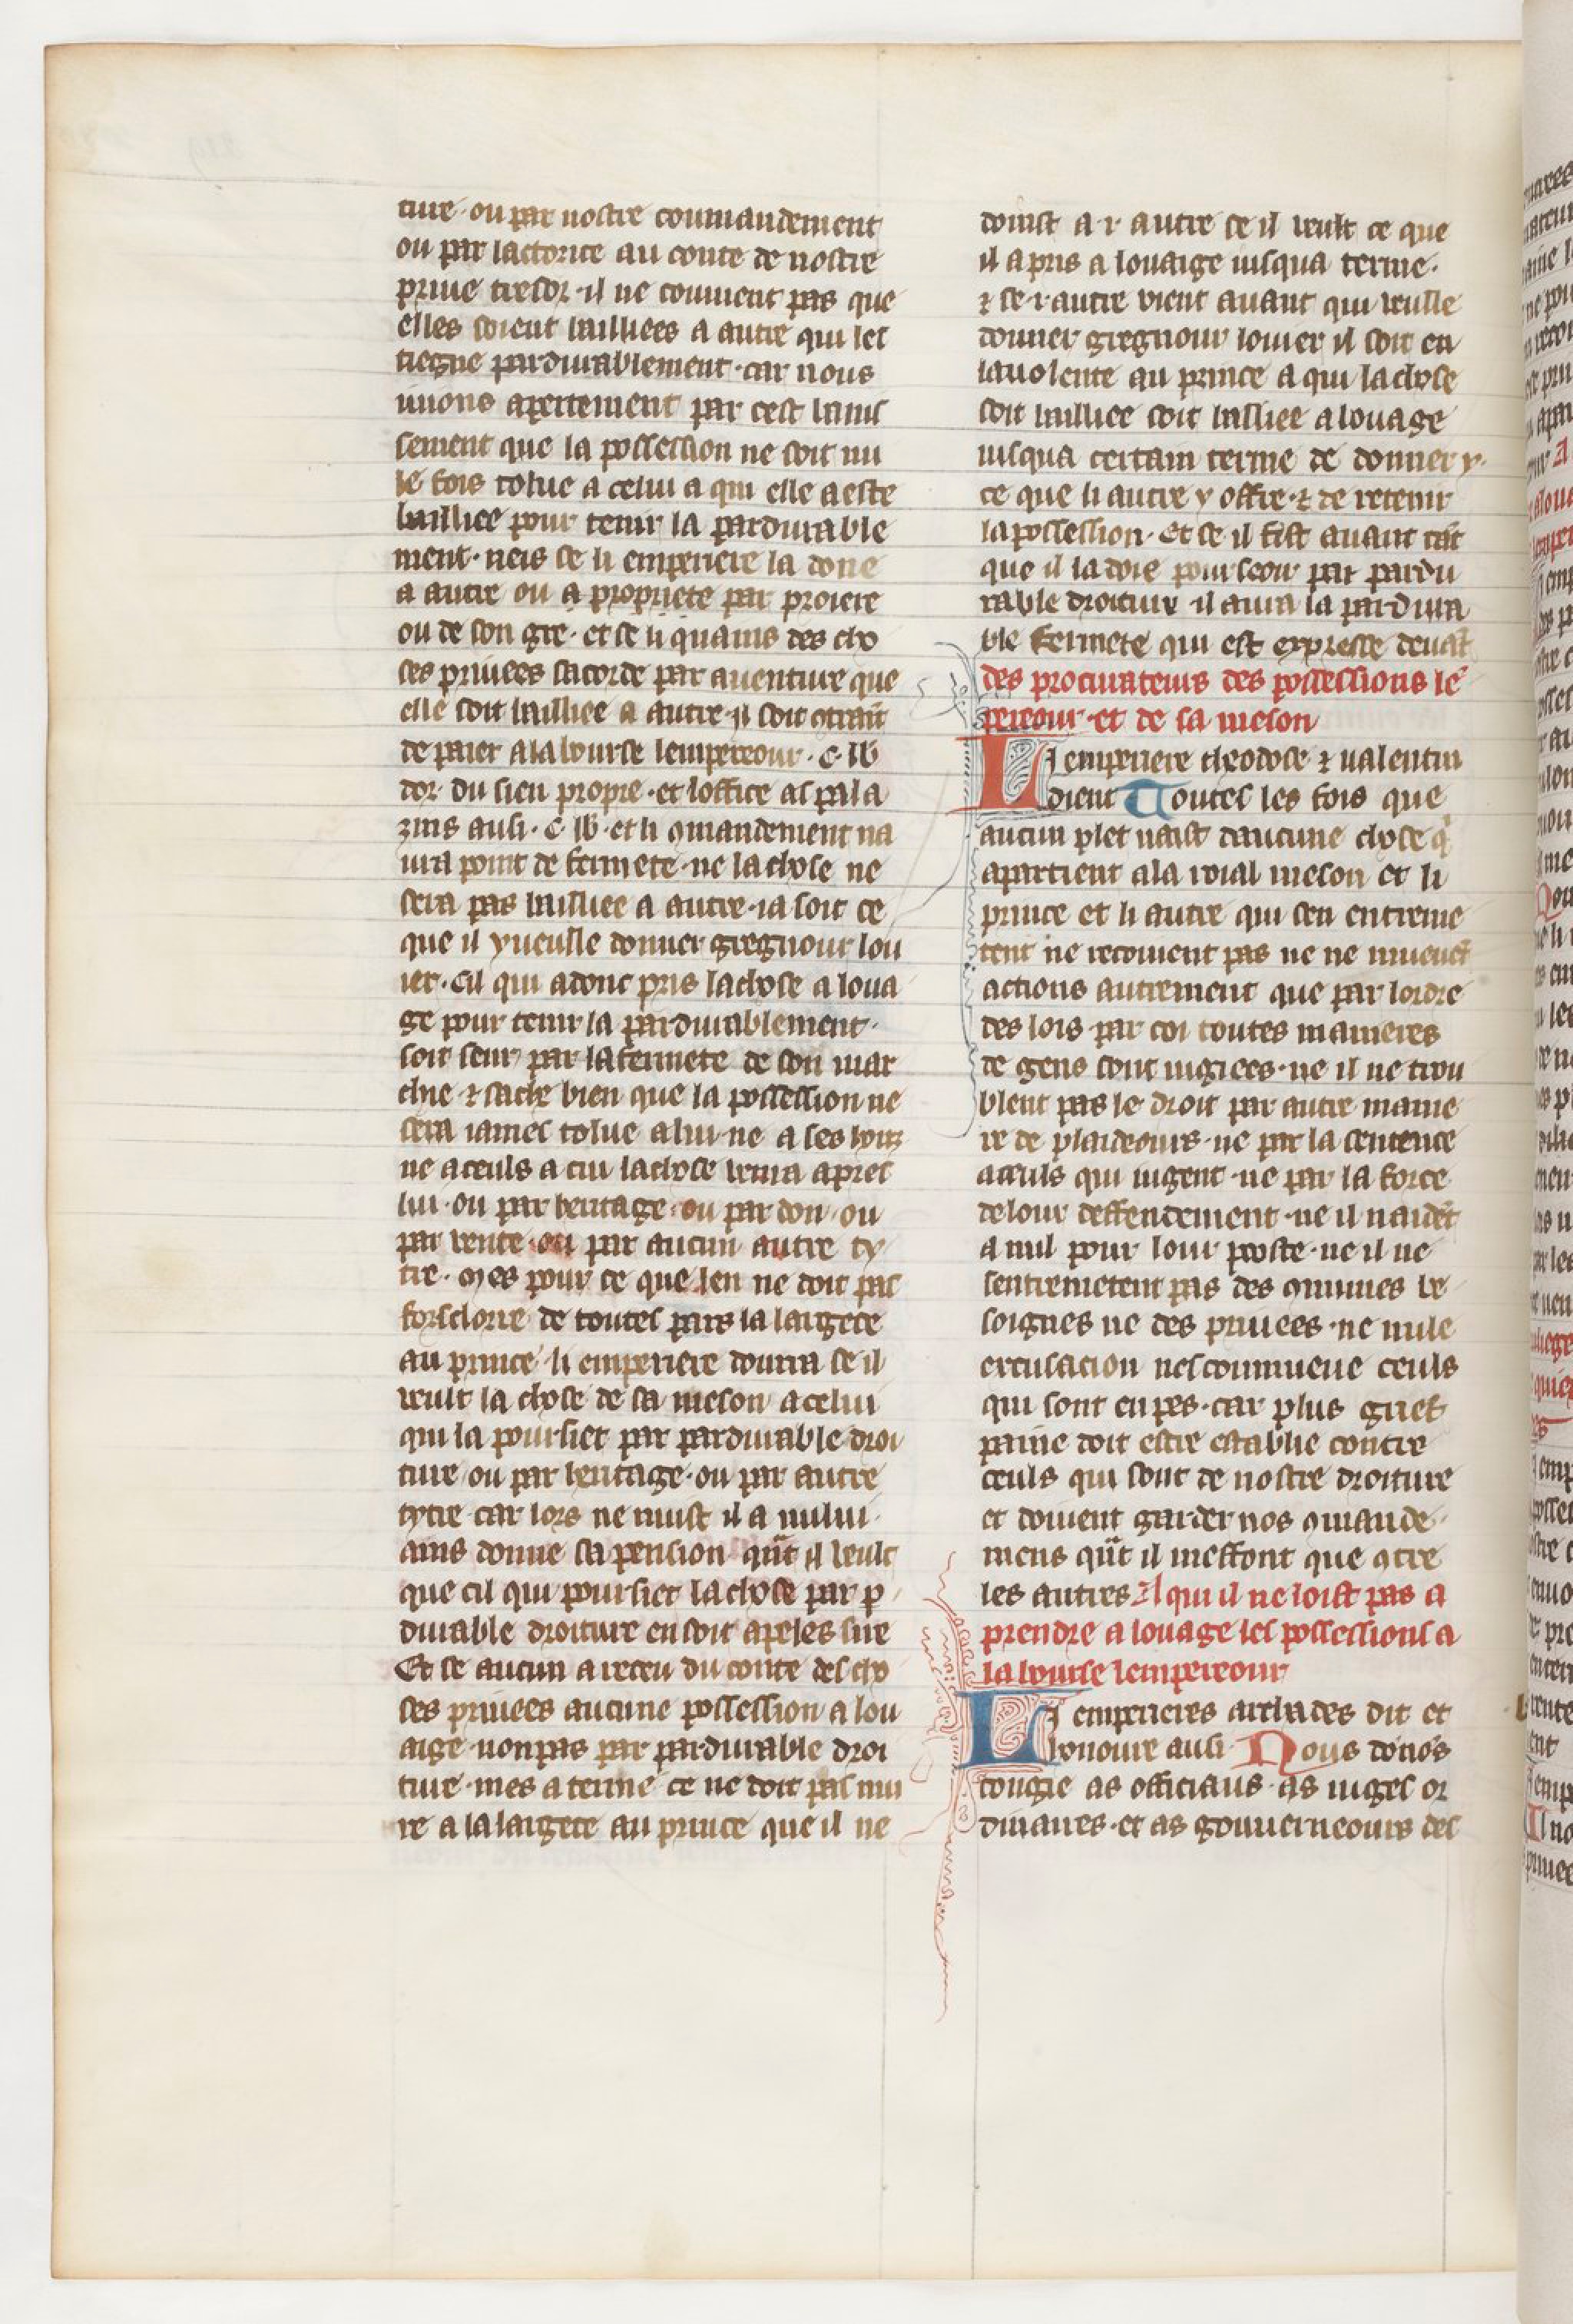 ture · ou par nostre coumandement
ou par lactorite au conte de nostre
priue tresor · il ne couuient pas que
elles soient bailliees a autre qui les
tiegne pardurablement · car nous
iuions apertement par cest
sement que la possession ne soit nu
le fois tolue a celui a qui elle a este
bailliee pour tenir la pardurable
ment · neis se li emperiere la done
a autre ou a propriete par proiere
ou de son gre · et se li quains des cho
ses priuees sacorde par auenture que
elle soit bailliee a autre · il soit ꝯtraīt
de paier a la bourse lempereour · c · lb
dor · du sien propre · et loffice as pala
zins ausi · c · lb · et li ꝯmandement na
ura point de fermete · ne la chose ne
sera pas bailliee a autre · ia soit ce
que il y ueulle donner gregnour lou
ier · Cil qui adont pris la chose a loua
ge pour tenir la pardurablement ·
soit seur par la fermete de son mar
chie ⁊ sache bien que la possession ne
sera iames tolue a lui · ne a ses hoirs
ne a ceuls a cui la chose uenra apres
lui · ou par heritage · ou par don · ou
par uente · ou par aucun autre ty
tre · Mes pour ce que len ne doit pas
forsclorre de toutes pars la largece
au prince li emperiere dourra se il
ueult la chose de sa meson a celui
qui la poursiet par pardurable droi
ture ou par heritage · ou par autre
tytre car lors ne nuist il a nului ·
ains donne sa pension qn̄t il ueult
que cil qui poursiet la chose par p
durable droiture en soit apeles sire
Et se aucun a receu du conte des cho
ses priuees aucune possession a lou
aige · non pas par pardurable droi
ture · mes a terme ce ne doit pas nui
re a la largece au prince que il ne
doinst a · i · autre se il ueult ce que
il a pris a louaige iusqua terme ·
⁊ se · i · autre uient auant qui ueulle
donner gregnour louier il soit en
la uolente au prince a qui la chose
soit bailliee soit bailliee a louage
iusqua certain terme de donner y ·
ce que li autre y offre · ⁊ de retenir
la possession · Et se il fist auant tāt
que il la doie pourseoir par pardu
rable droiture il aura la pardura
ble fermete qui est expresse deuāt
des procurateurs des possessions lē
pereour · et de sa meson
Li emperiere theodose ⁊ ualentin
dient Toutes les fois que
aucun plet naist daucune chose q̄
apartient a la roial meson et li
prince et li autre qui sen entreme
tent ne recoiuent pas ne ne mueuēt
actions autrement que par lordre
des lois · par coi toutes manieres
de gens sont iugiees · ne il ne trou
blent pas le droit par autre manie
re de plaideours · ne par la sentence
a ceuls qui iugent · ne par la force
de lour deffendement · ne il naidēt
a nul pour lour poste · ne il ne
sentremetent pas des ꝯmunes be
soignes ne des priuees · ne nule
excusacion nescommueue ceuls
qui sont en pes · car plus grief
paine doit estre establie contre
ceuls qui sont de nostre droiture
et doiuent garder nos ꝯmande
mens qn̄t il meffont que ꝯtre
les autres · A qui il ne loist pas a
prendre a louage les possessions a
la bourse lempereour
Li emperieres archades dit et
honoure ausi · Nous donōs
congie as officiaus · as iuges or
dinaires · et as gouuerneours des